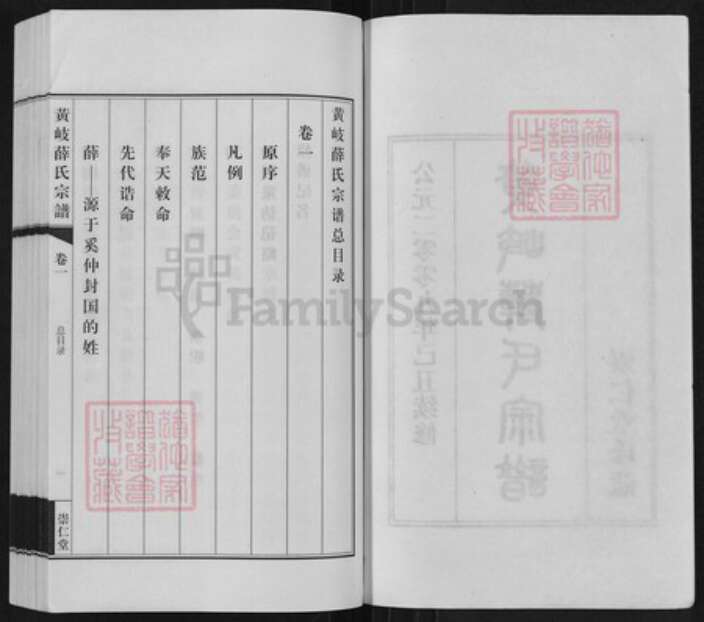 黄岐薛氏宗谱总目录
卷一
原序
凡例
族范
奉天敕命
先代诰命
薛——源于奚仲封国的姓
黄岐薛氏宗譜
卷一
总目录
一
崇仁堂
FamilySearch
公元二零零九年己丑续修